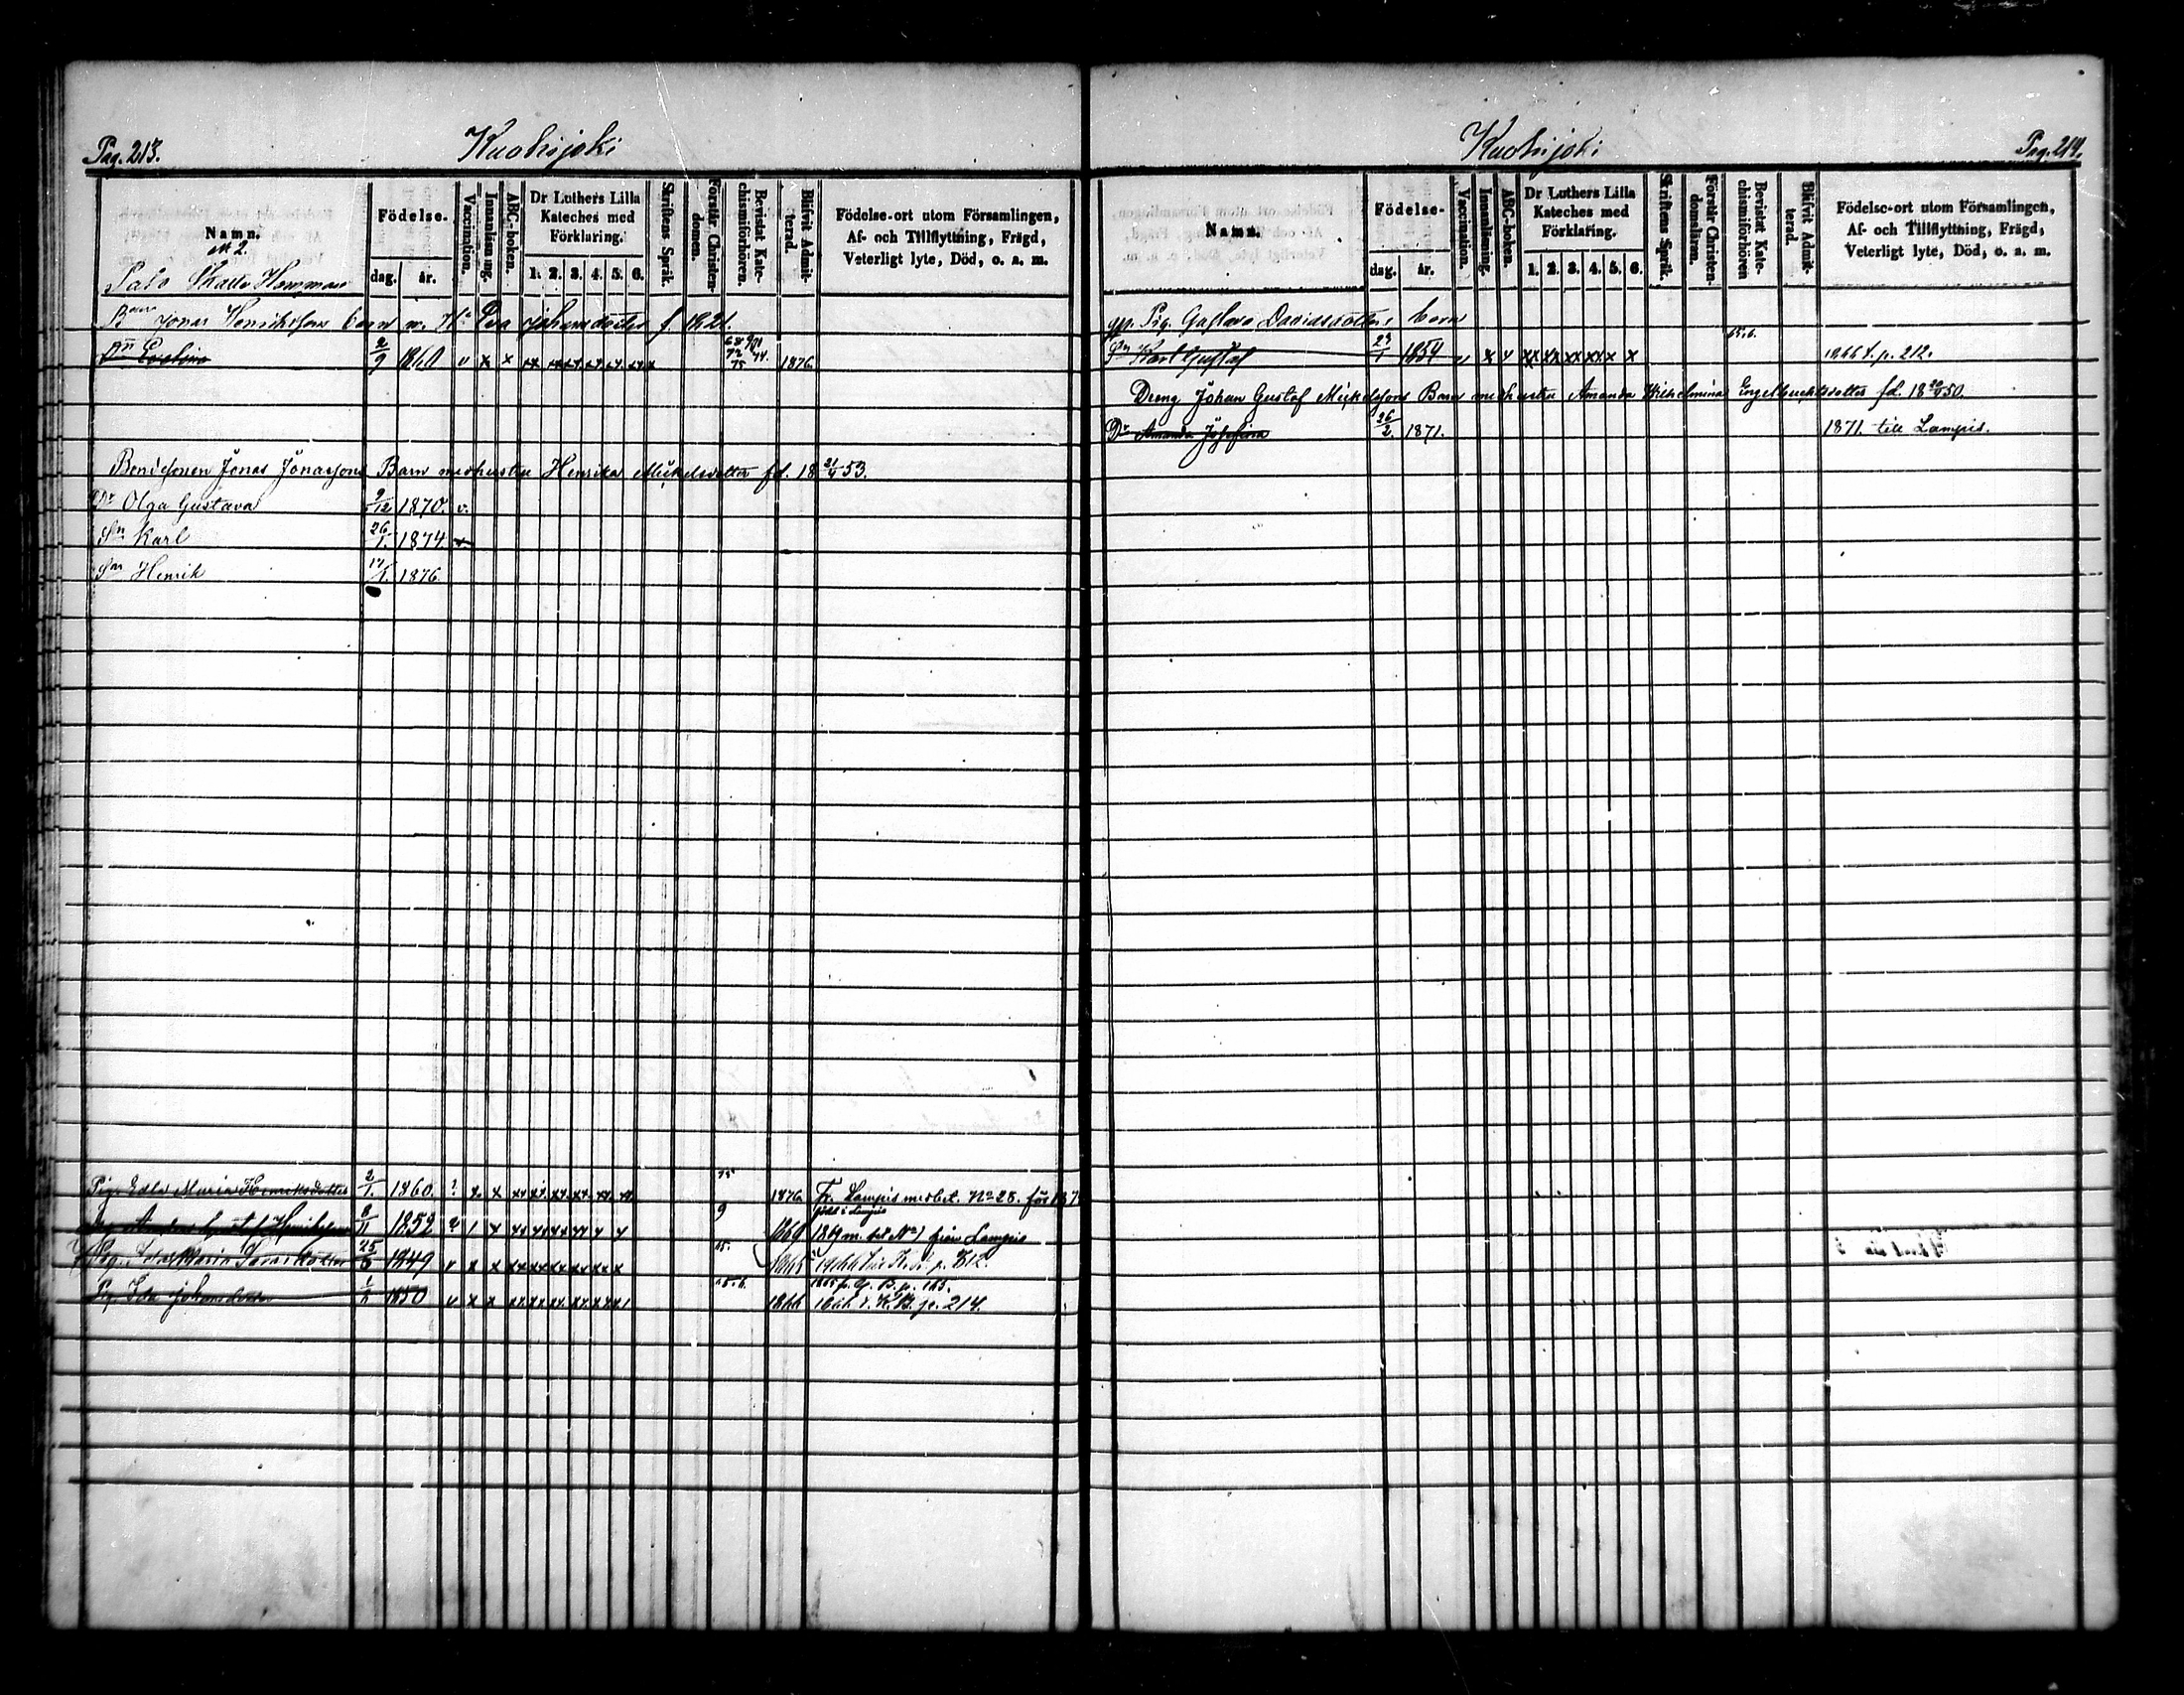 Pag. 213.
Kuohijoki
Namn.
№ 2.
Palo Skatte Hemman
Födelse.
dag.
år.
Vaccination.
Innanläsning.
ABC-boken.
Dr Luthers Lilla Kateches med Förklaring.
1. 2. 3. 4. 5. 6.
Skriftens Språk.
Förstår Christendomen.
Bevistat Katechismiförhören.
Blifvit Admitterad.
Födelse-ort utom Församlingen, Af- och Tillflyttning, Frägd, Veterligt lyte, Död, o. a. m.
Jonas Henriksson barn m. H Eva Johansdotter f. 1821.
Evelina 2/9 1860 v x x 1876.
Bondsonen Jonas Jonassons Barn med hustru Henrika Mickelsdotter fd. 18 53.
Dr Olga Gustava 9/12 1870. v.
Sn Karl 26/1. 1874
Sn Henrik 17/1. 1876.
Pig. Edla Maria Henriksdotter 2/1. 1860. ? x. x 75 1876. Fr. Lampis med bet. No 28. för 187
Gustaf Henriksson 8/11 1852 9 1869 1869 m. bet No 1 från Lampis
Pig. Maria 25/ 1849 v x x 1865 p. 212.
Pig. Ida Johansdotter 1850 v x x 65.6. 1866 K. B. p. 214.
Kuohijoki
Pag. 214.
Namn.
Födelse-
dag.
år.
Vaccination.
Innanläsning.
ABC-boken.
Dr Luthers Lilla Kateches med Förklaring.
1. 2. 3. 4. 5. 6.
Skriftens Språk.
Förstår Christendomsläran.
Bevistat Katechismiförhören
Blifvit Admitterad.
Födelse-ort utom Församlingen, Af- och Tillflyttning, Frägd, Veterligt lyte, Död, o. a. m.
Pig. Gustava Davidsdotters barn
Sn Karl Gustaf 1854 v x 65.6. 1866 t. p. 212.
Dreng Johan Gustaf Mickelssons Barn med hustru Amanda Wilhelmina Engelbrechtsdotter fd. 18 50.
Dr Amanda Josefina 26/2. 1871. 1871. till Lampis.